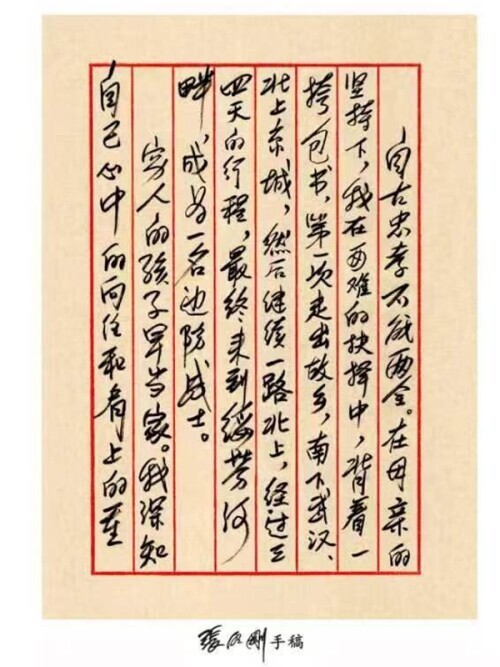 自古忠孝不能两全。在母亲的
坚持下，我在两难的抉择中，背着一
挎包书，第一次走出故乡，南下武汉、
北上京城，然后继续一路北上，经过三
四天的行程，最终来到绥芬河
畔，成为一名边防战士。
穷人的孩子早当家。我深知
自己心中的向往和肩上的重
张红刚手稿